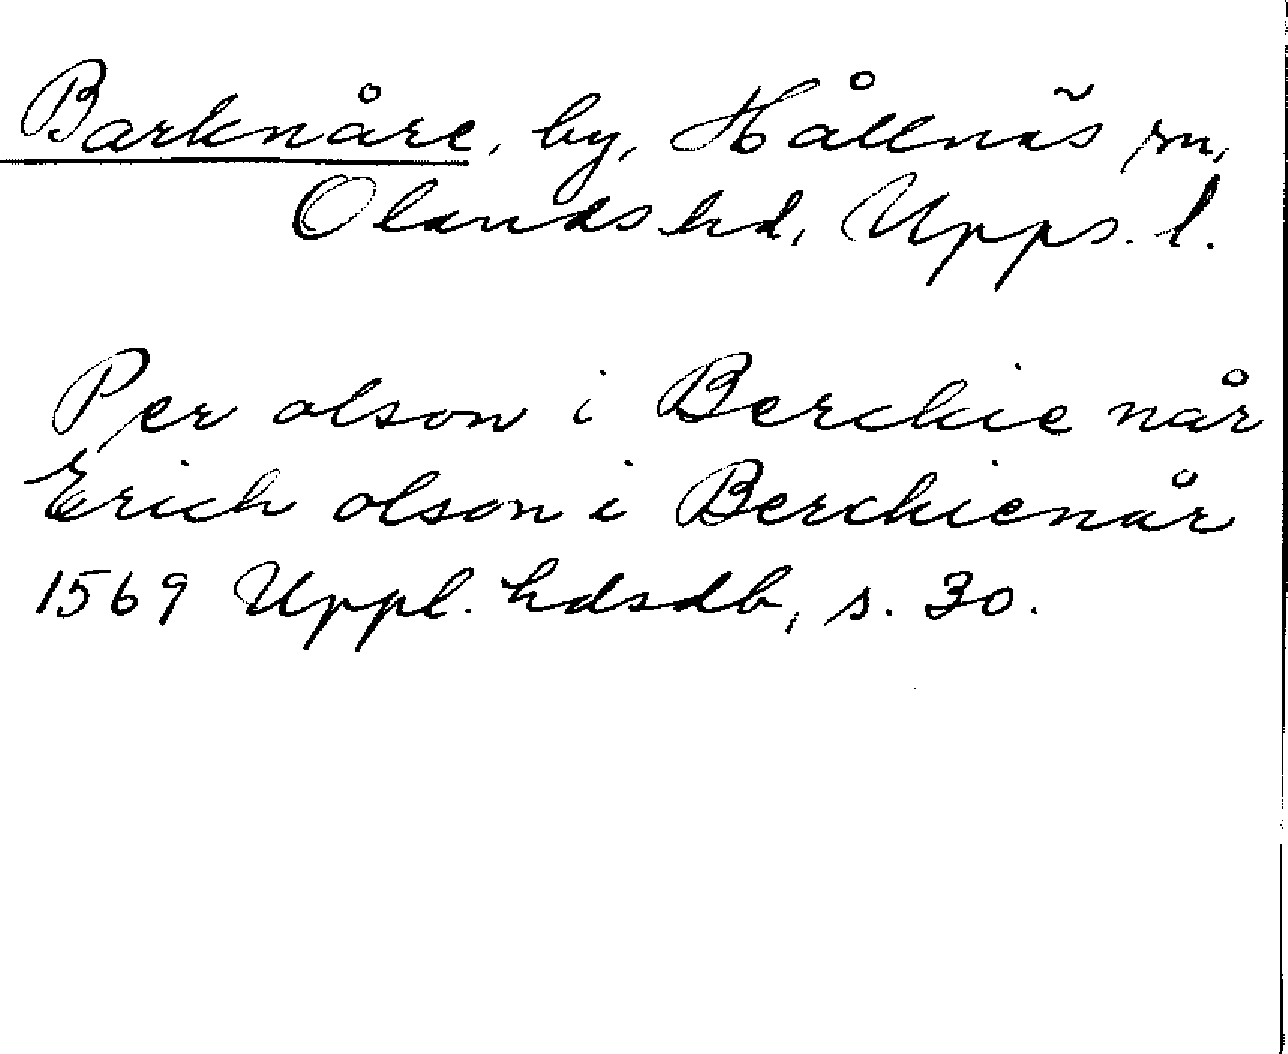 Barknåre, by, Hållnäs sn,
Olands hd, Upps. l.
Per olson i Berchie når
Erich olson i Berchienår
1569 Uppl. hdsdb, s. 30.